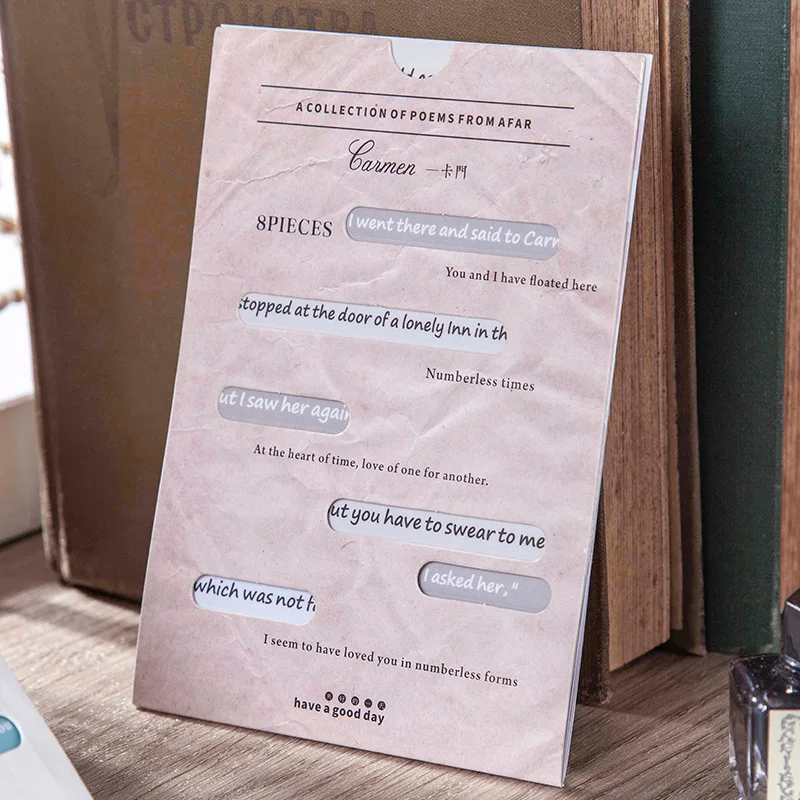 СТРОИСТВА
A COLLECTION OF POEMS FROM AFAR
Carmen 一卡門
8PIECES
I went there and said to Carr
You and I have floated here
topped at the door of a lonely Inn in th
Numberless times
ut I saw her again
At the heart of time, love of one for another.
ut you have to swear to me
I asked her,"
which was not
I seem to have loved you in numberless forms
have a good day